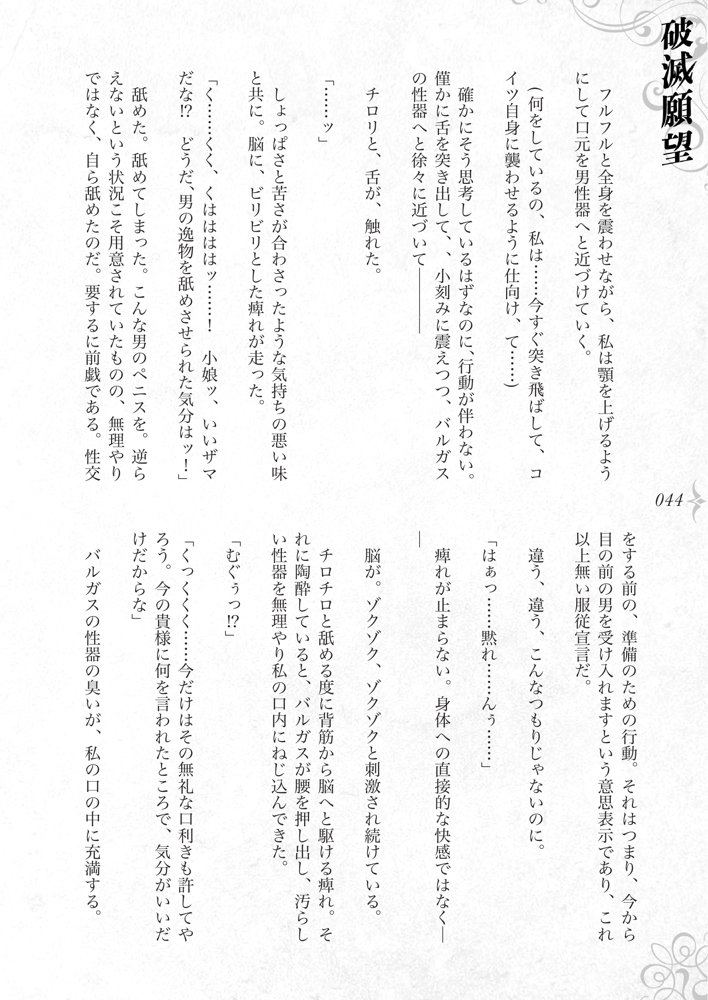 破滅願望
フルフルと全身を震わせながら、私は顎を上げるよう
にして口元を男性器へと近づけていく。
(何をしているの、私は……今すぐ突き飛ばして、コ
イツ自身に襲わせるように仕向け、て……)
確かにそう思考しているはずなのに、行動が伴わない。
僅かに舌を突き出して、、小刻みに震えつつ、バルガス
の性器へと徐々に近づいて――――
チロリと、舌が、触れた。
「……ッ」
しょっぱさと苦さが合わさったような気持ちの悪い味
と共に。脳に、ビリビリとした痺れが走った。
「く……くく、くははははッ……！　小娘ッ、いいザマ
だな!?　どうだ、男の逸物を舐めさせられた気分はッ！」
舐めた。舐めてしまった。こんな男のペニスを。逆ら
えないという状況こそ用意されていたものの、無理やり
ではなく、自ら舐めたのだ。要するに前戯である。性交
044
をする前の、準備のための行動。それはつまり、今から
目の前の男を受け入れますという意思表示であり、これ
以上無い服従宣言だ。
違う、違う、こんなつもりじゃないのに。
「はぁっ……黙れ……んぅ……」
痺れが止まらない。身体への直接的な快感ではなく―
―
脳が。ゾクゾク、ゾクゾクと刺激され続けている。
チロチロと舐める度に背筋から脳へと駆ける痺れ。そ
れに陶酔していると、バルガスが腰を押し出し、汚らし
い性器を無理やり私の口内にねじ込んできた。
「むぐぅっ!?」
「くっくくく……今だけはその無礼な口利きも許してや
ろう。今の貴様に何を言われたところで、気分がいいだ
けだからな」
バルガスの性器の臭いが、私の口の中に充満する。